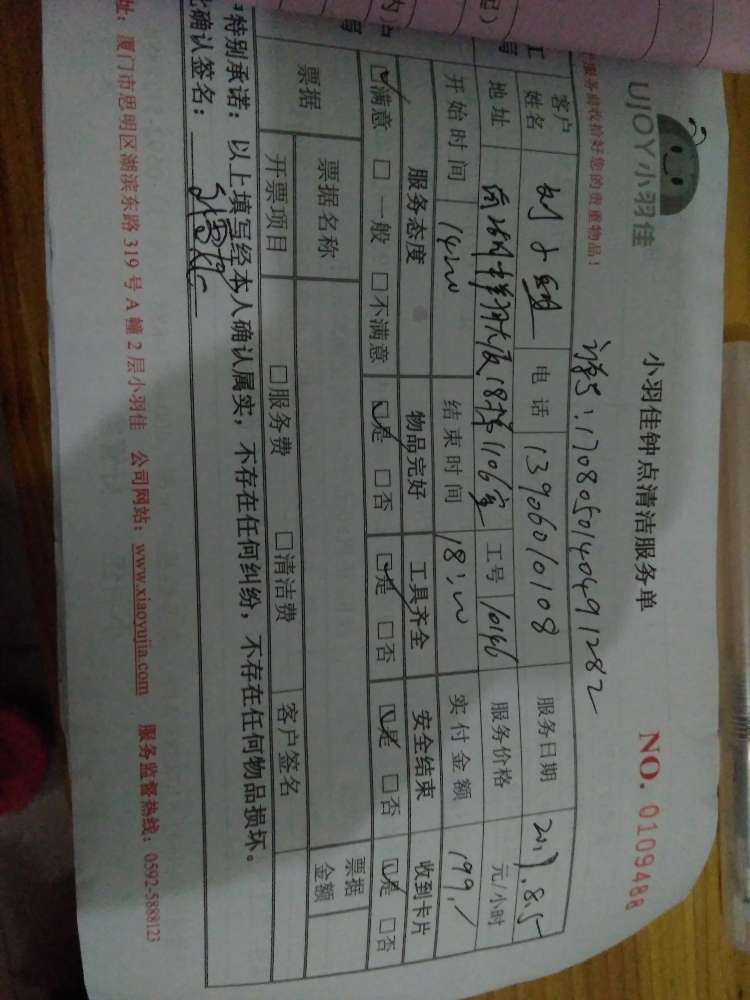 UJOY小羽佳
小羽佳钟点清洁服务单
NO. 0109488
服务前收拾好您的贵重物品！
1708050140491282
客户姓名 电话 13906010108 服务日期 2017.8.5
地址 18栋1106室 工号 10146 服务价格 元/小时
开始时间 14:00 结束时间 18:00 实付金额 199.
服务态度 物品完好 工具齐全 安全结束 收到卡片
☑满意 □一般 □不满意 ☑是 □否 ☑是 □否 ☑是 □否 ☑是 □否
票据 票据名称 票据金额
开票项目 □服务费 □清洁费 客户签名
特别承诺：以上填写经本人确认属实，不存在任何纠纷，不存在任何物品损坏。
确认签名：
址：厦门市思明区湖滨东路319号A幢2层小羽佳 公司网站：www.xiaoyujia.com 服务监督热线：0592-5888123